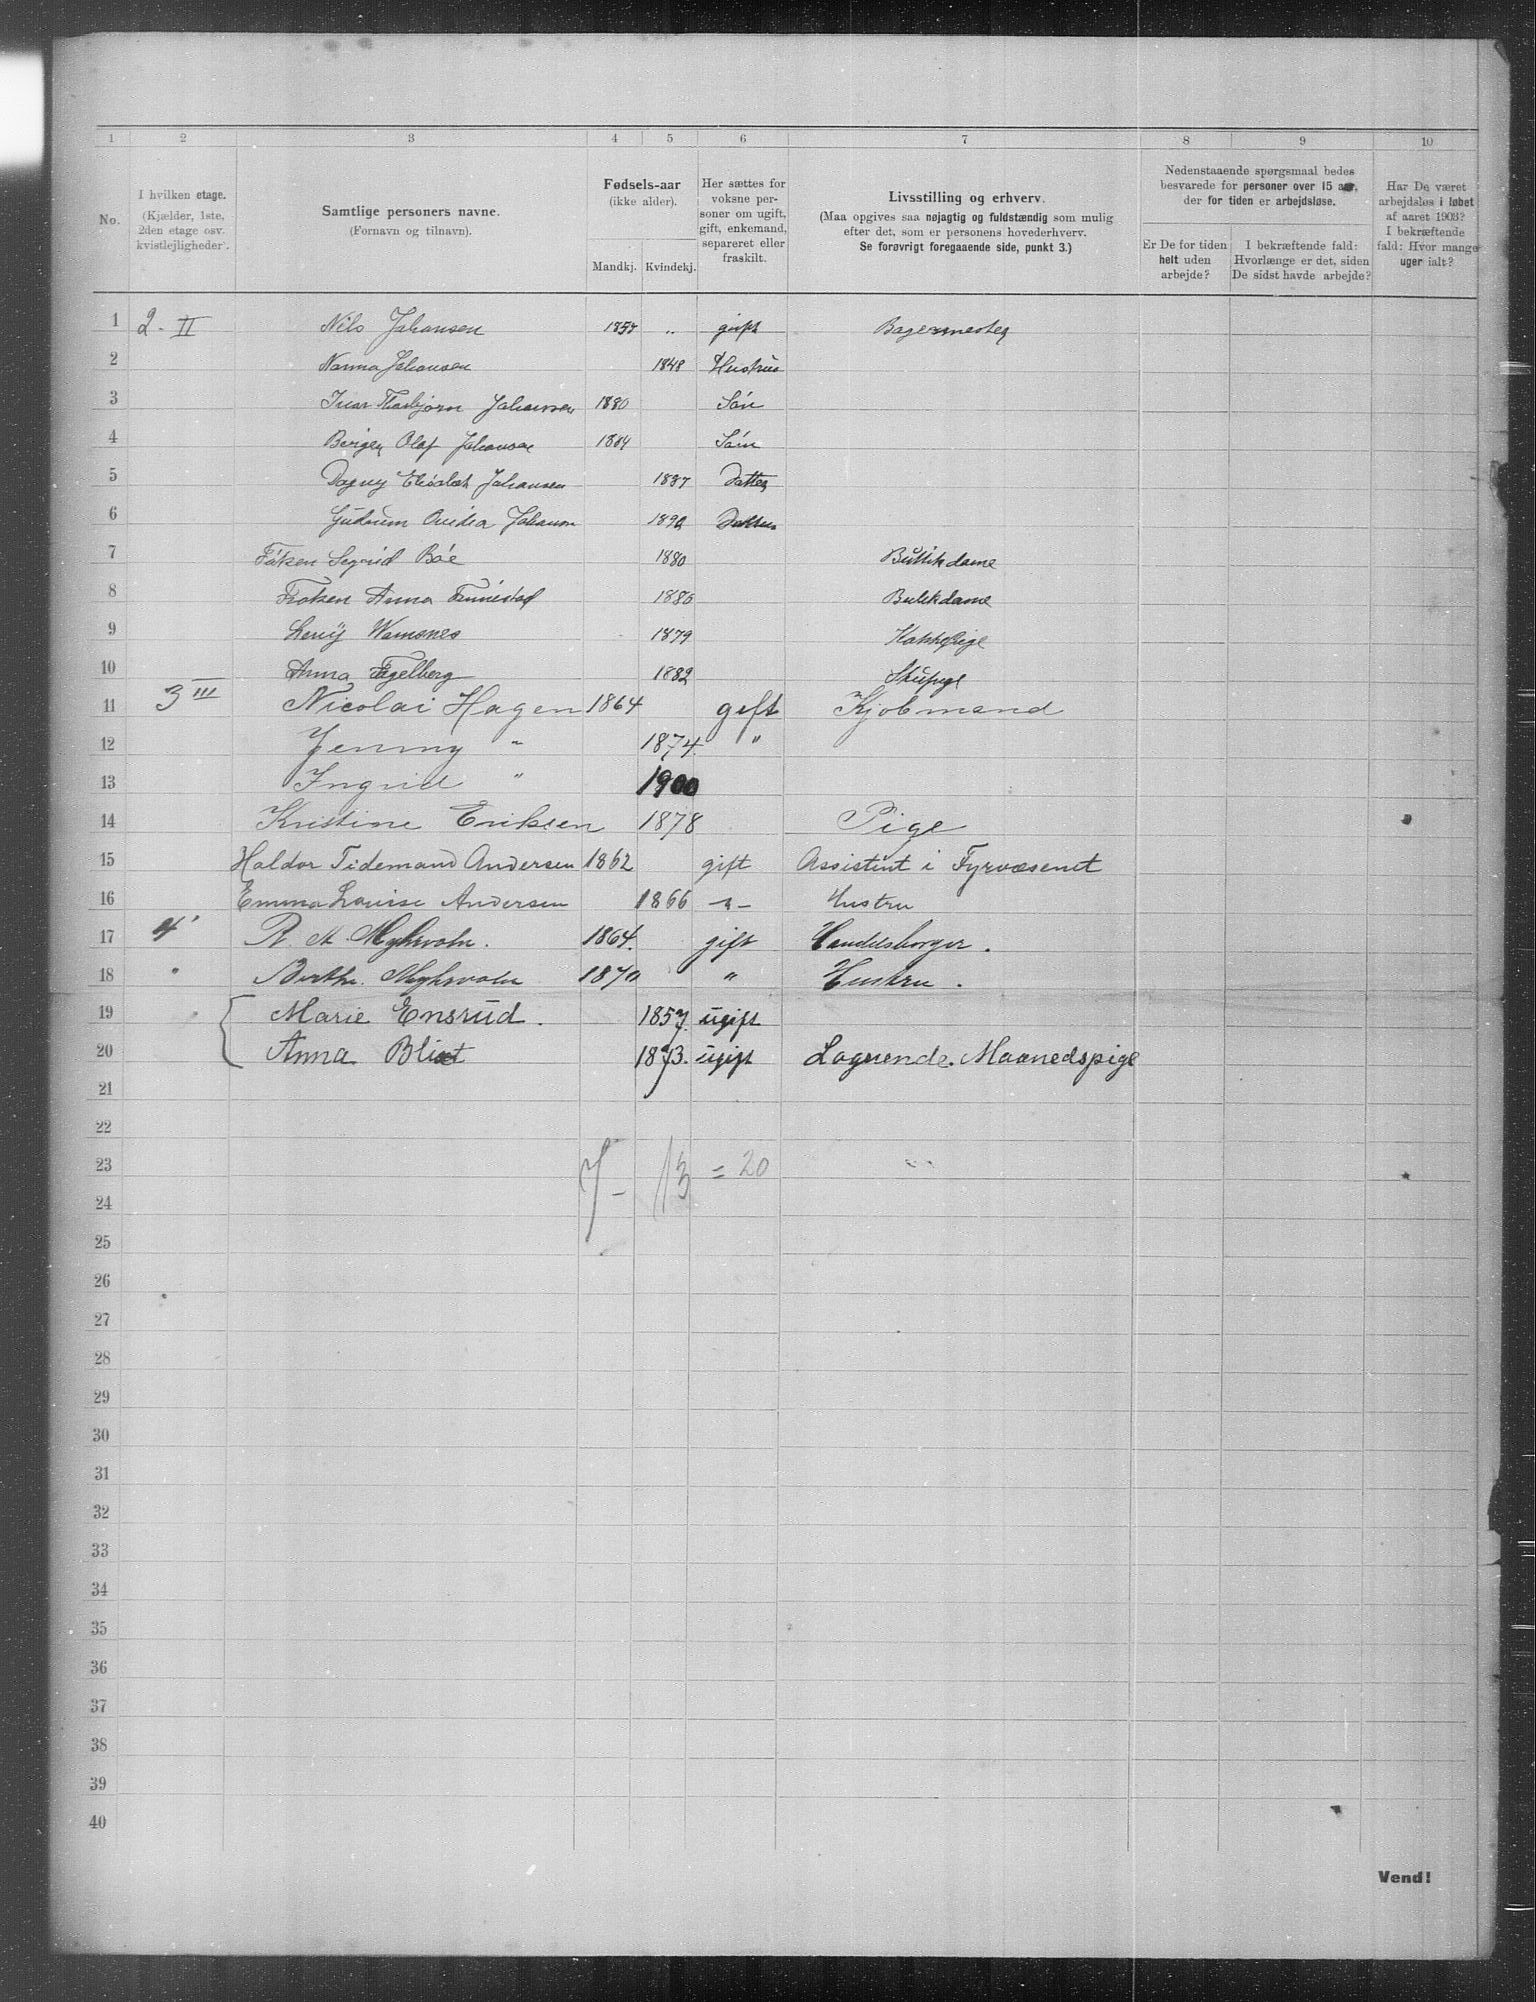 1 2 3 4 5 6 7 8 9 10
No. I hvilken etage. (Kjælder, 1ste, 2den etage osv. kvistlejligheder).
Samtlige personers navne. (Fornavn og tilnavn).
Fødsels-aar (ikke alder). Mandkj. Kvindekj.
Her sættes for voksne personer om ugift, gift, enkemand, separeret eller fraskilt.
Livsstilling og erhverv.
(Maa opgives saa nøjagtig og fuldstændig som mulig efter det, som er personens hovederhverv.
Se forøvrigt foregaaende side, punkt 3.)
Nedenstaaende spørgsmaal bedes besvarede for personer over 15 aar, der for tiden er arbejdsløse.
Er De for tiden helt uden arbejde?
I bekræftende fald: Hvorlænge er det, siden De sidst havde arbejde?
Har De været arbejdsløs i løbet af aaret 1903? I bekræftende fald: Hvor mange uger ialt?
1 2. II Nils Johansen " gift Bagermester
2 Nanna Johansen 1848 Hustru
3 Ivar Thorbjørn Johansen 1880 Søn
4 Birger Olaf Johansen 1884 Søn
5 Dagny Elisabet Johansen 1887 Datter
6 Gudrun Ovidia Johansen 1892 Datter
7 Frøken Sigrid Bøe 1880 Buttikdame
8 Frøken Anna 1886 Butikdame
9 1879 Kokkepige
10 Anna Fagelberg 1882 Stupige
11 3 III Nicolai Hagen 1864 gift Kjøbmand
12 Jenny " 1874. "
13 Ingrid " 1900
14 Kristine Eriksen 1878 Pige
15 Haldor Tidemand Andersen 1862 gift Assistent i Fyrvæsenet
16 Emma Louise Andersen 1866 -"- Hustru
17 4' R. A. Myhrvold. 1864. gift Handelsborger.
18 " Berthe Myhrvold 1870 " Hustru.
19 Marie Ensrud. 1857. ugift
20 Anna Blixt 1873. ugift Logerende. Maanedspige
21
22
23 7 - 13 = 20
24
25
26
27
28
29
30
31
32
33
34
35
36
37
38
39
40
Vend!